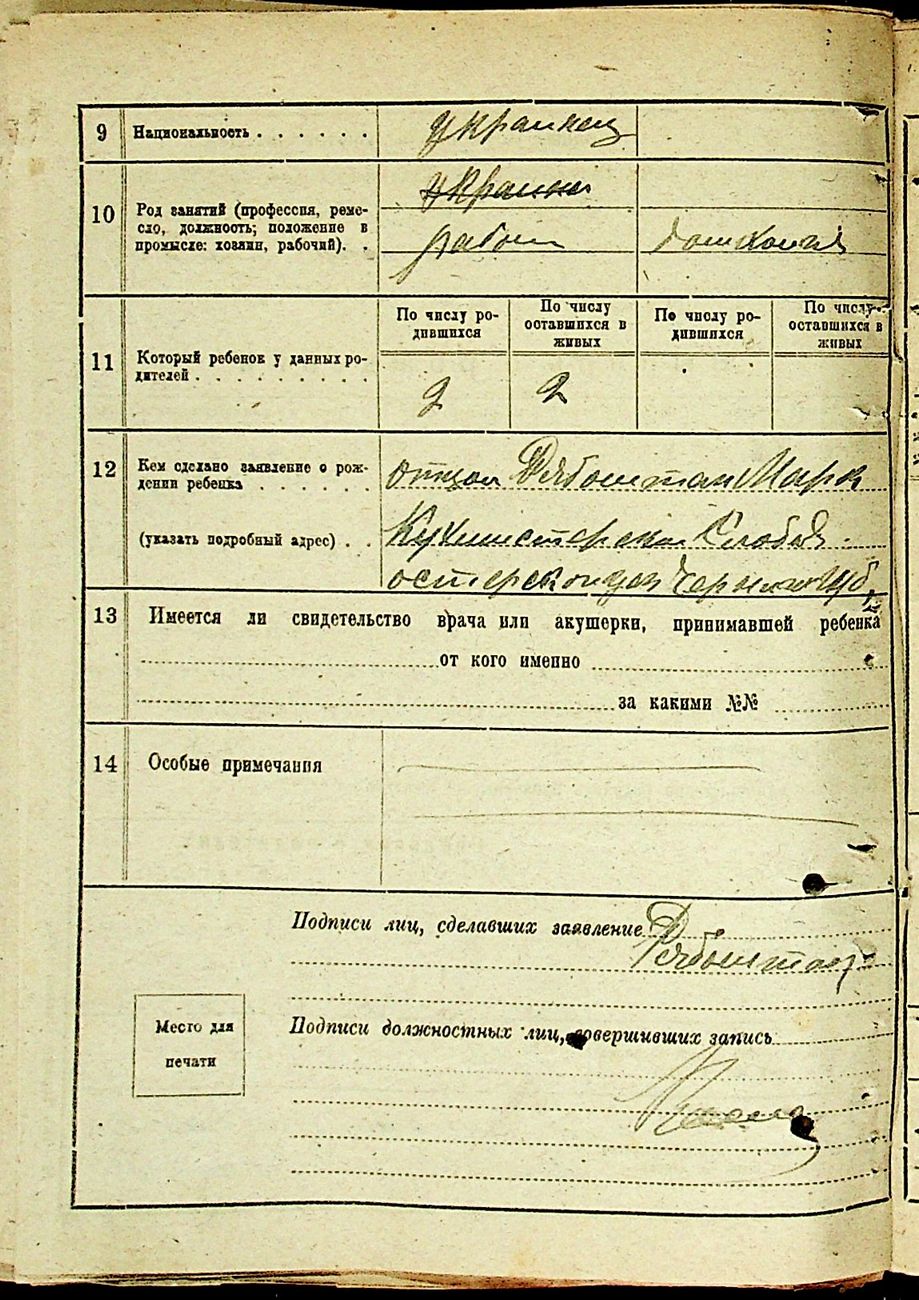 9 Национальность . . . . . . украинец
украине
10 Род занятий (профессия, реме-
сло, должность; положение в
промысле: хозяин, рабочий). . рабоч домохоз
По числу ро-
дившихся
По числу
оставшихся в
живых
По числу ро-
дившихся
По число
оставшихся в
живых
11 Который ребенок у данных ро-
дителей . . . . . . . . . 2 2
12 Кем сделано заявление о рож-
дении ребенка . . . . . . отцом Рябоштан Марк
(указать подробный адрес) . . Кухмистерская Слобод
остерского уез Черниг губ,
13 Имеется ли свидетельство врача или акушерки, принимавшей ребенка
от кого именно
за какими №№
14 Особые примечания
Подписи лиц, сделавших заявление
Рябоштан
Место для
печати
Подписи должностных лиц, совершивших запись